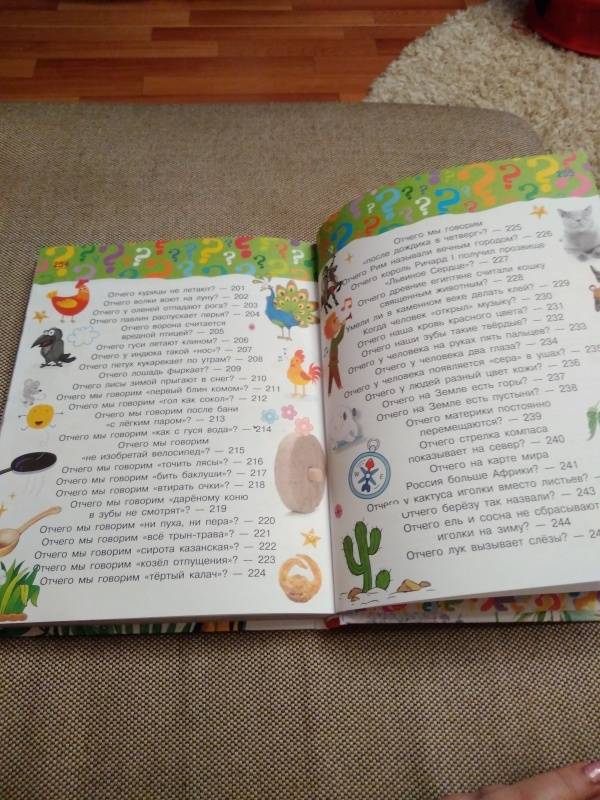 254
Отчего курицы не летают? — 201
Отчего волки воют на луну? — 202
Отчего у оленей отпадают рога? — 203
Отчего павлин распускает перья? — 204
Отчего ворона считается
вредной птицей? — 205
Отчего гуси летают клином? — 206
Отчего у индюка такой «нос»? — 207
Отчего петух кукарекает по утрам? — 208
Отчего лошадь фыркает? — 209
Отчего лисы зимой прыгают в снег? — 210
Отчего мы говорим «первый блин комом»? — 211
Отчего мы говорим «гол как сокол»? — 212
Отчего мы говорим после бани
«с лёгким паром»? — 213
Отчего мы говорим «как с гуся вода»? — 214
Отчего мы говорим
«не изобретай велосипед»? — 215
Отчего мы говорим «точить лясы»? — 216
Отчего мы говорим «бить баклуши»? — 217
Отчего мы говорим «втирать очки»? — 218
Отчего мы говорим «дарёному коню
в зубы не смотрят»? — 219
Отчего мы говорим «ни пуха, ни пера»? — 220
Отчего мы говорим «всё трын-трава»? — 221
Отчего мы говорим «сирота казанская»? — 222
Отчего мы говорим «козёл отпущения»? — 223
Отчего мы говорим «тёртый калач»? — 224
255
Отчего мы говорим
«после дождика в четверг»? — 225
Отчего Рим называли вечным городом? — 226
Отчего король Ричард I получил прозвище
«Львиное Сердце»? — 227
Отчего древние египтяне считали кошку
священным животным? — 228
Умели ли в каменном веке делать клей? — 229
Когда человек «открыл» музыку? — 230
Отчего наша кровь красного цвета? — 231
Отчего наши зубы такие твёрдые? — 232
Отчего у человека на руках пять пальцев? — 233
Отчего у человека два глаза? — 234
Отчего у человека появляется «сера» в ушах? — 235
Отчего у людей разный цвет кожи? — 236
Отчего на Земле есть горы? — 237
Отчего на Земле есть пустыни? — 238
Отчего материки постоянно
перемещаются? — 239
Отчего стрелка компаса
показывает на север? — 240
Отчего на карте мира
Россия больше Африки? — 241
Отчего у кактуса иголки вместо листьев? —
Отчего берёзу так назвали? — 243
Отчего ель и сосна не сбрасывают
иголки на зиму? — 244
Отчего лук вызывает слёзы? —